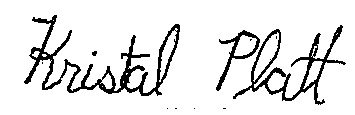 Kristal Platt